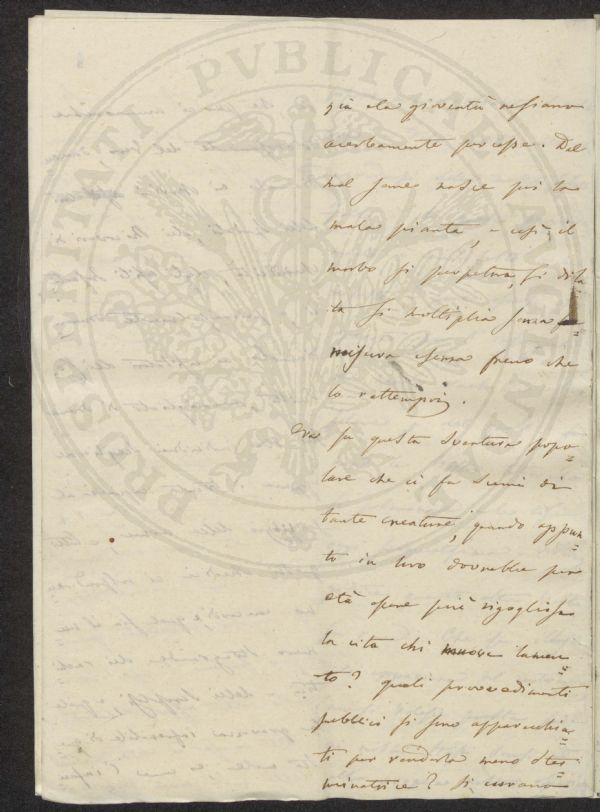 già la gioventù
acerbamente percosse. Dal
mal seme nasce poi la
mala pianta, e così il
morbo si perpetua, si dila=
ta si moltiplica senza
misura e senza freno che
lo rattempri.
Ora fu questa sventura popo=
lare che ci fa scemi di
tante creature, quando appun=
to in loro dovrebbe per
età essere più rigogliosa
la vita chi muove lamen=
to? quali provvedimenti
pubblici si sono apparecchia=
ti per renderla meno ster=
minatrice? Si curano
PROSPERITATI PVBLICAE AVGENDAE